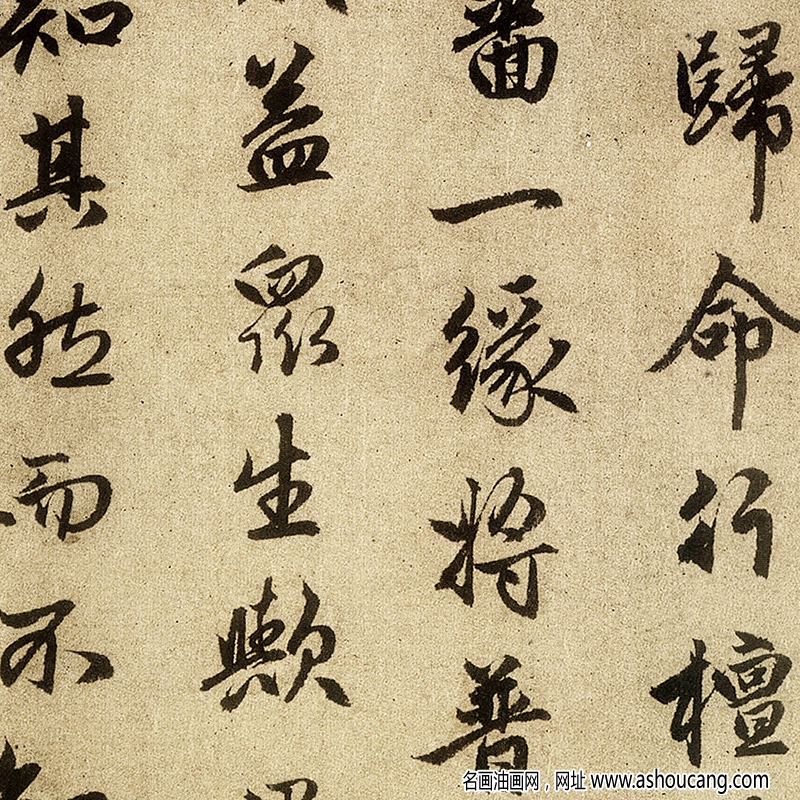 歸命行檀
一緣將普
益眾生歟
知其然而不
名画油画网，网址 www.ashoucang.com